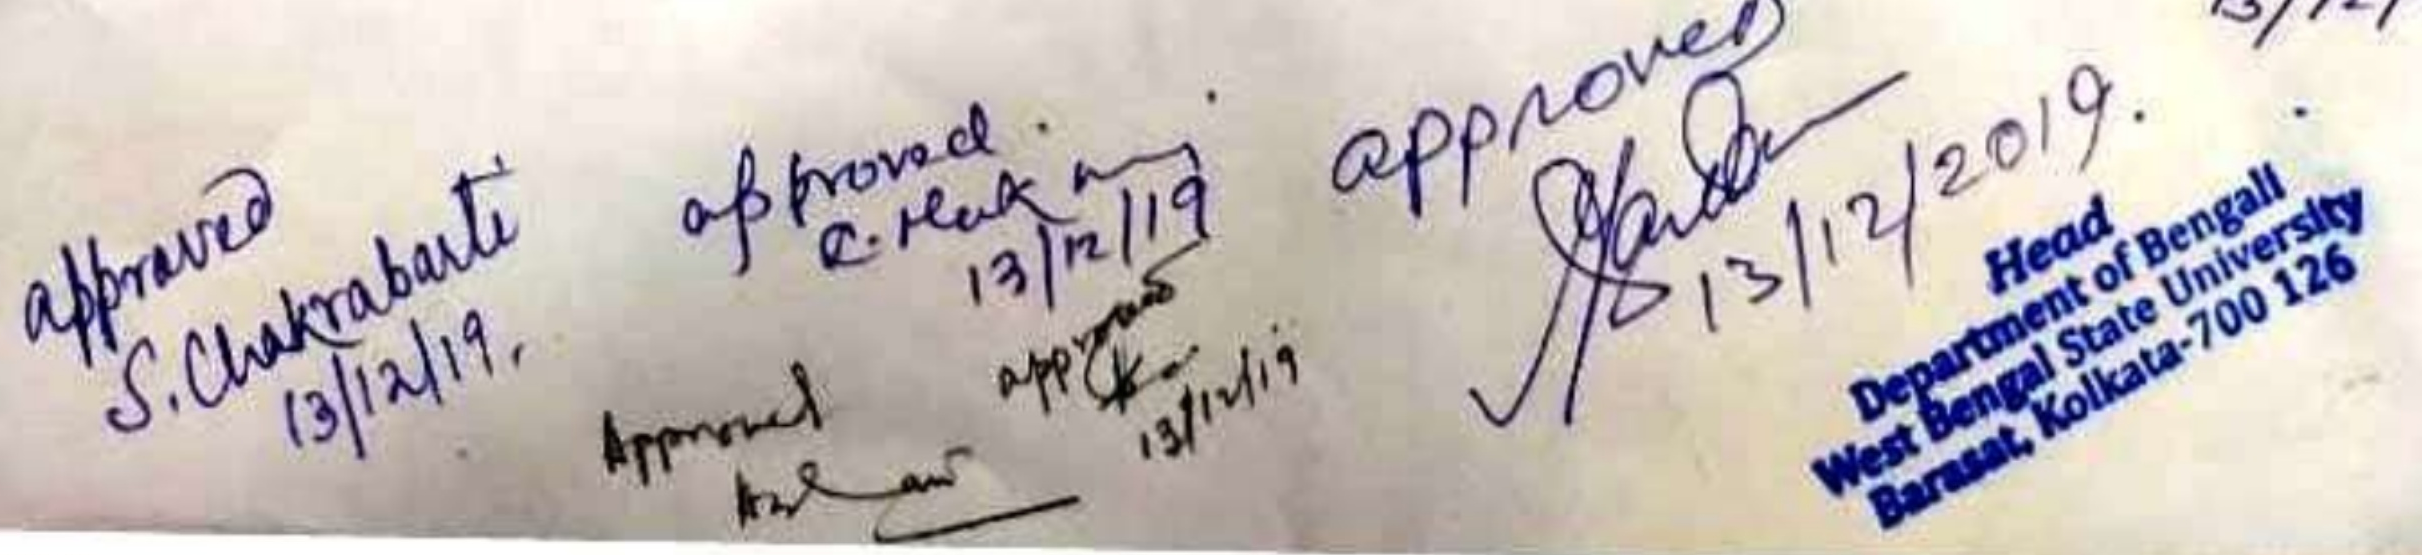 approved
S. Chakrabarti
13/12/19.
approved.
13/12/19
approved
13/12/19
Approved
approved
13/12/2019.
Head
Department of Bengali
West Bengal State University
Barasat, Kolkata-700 126